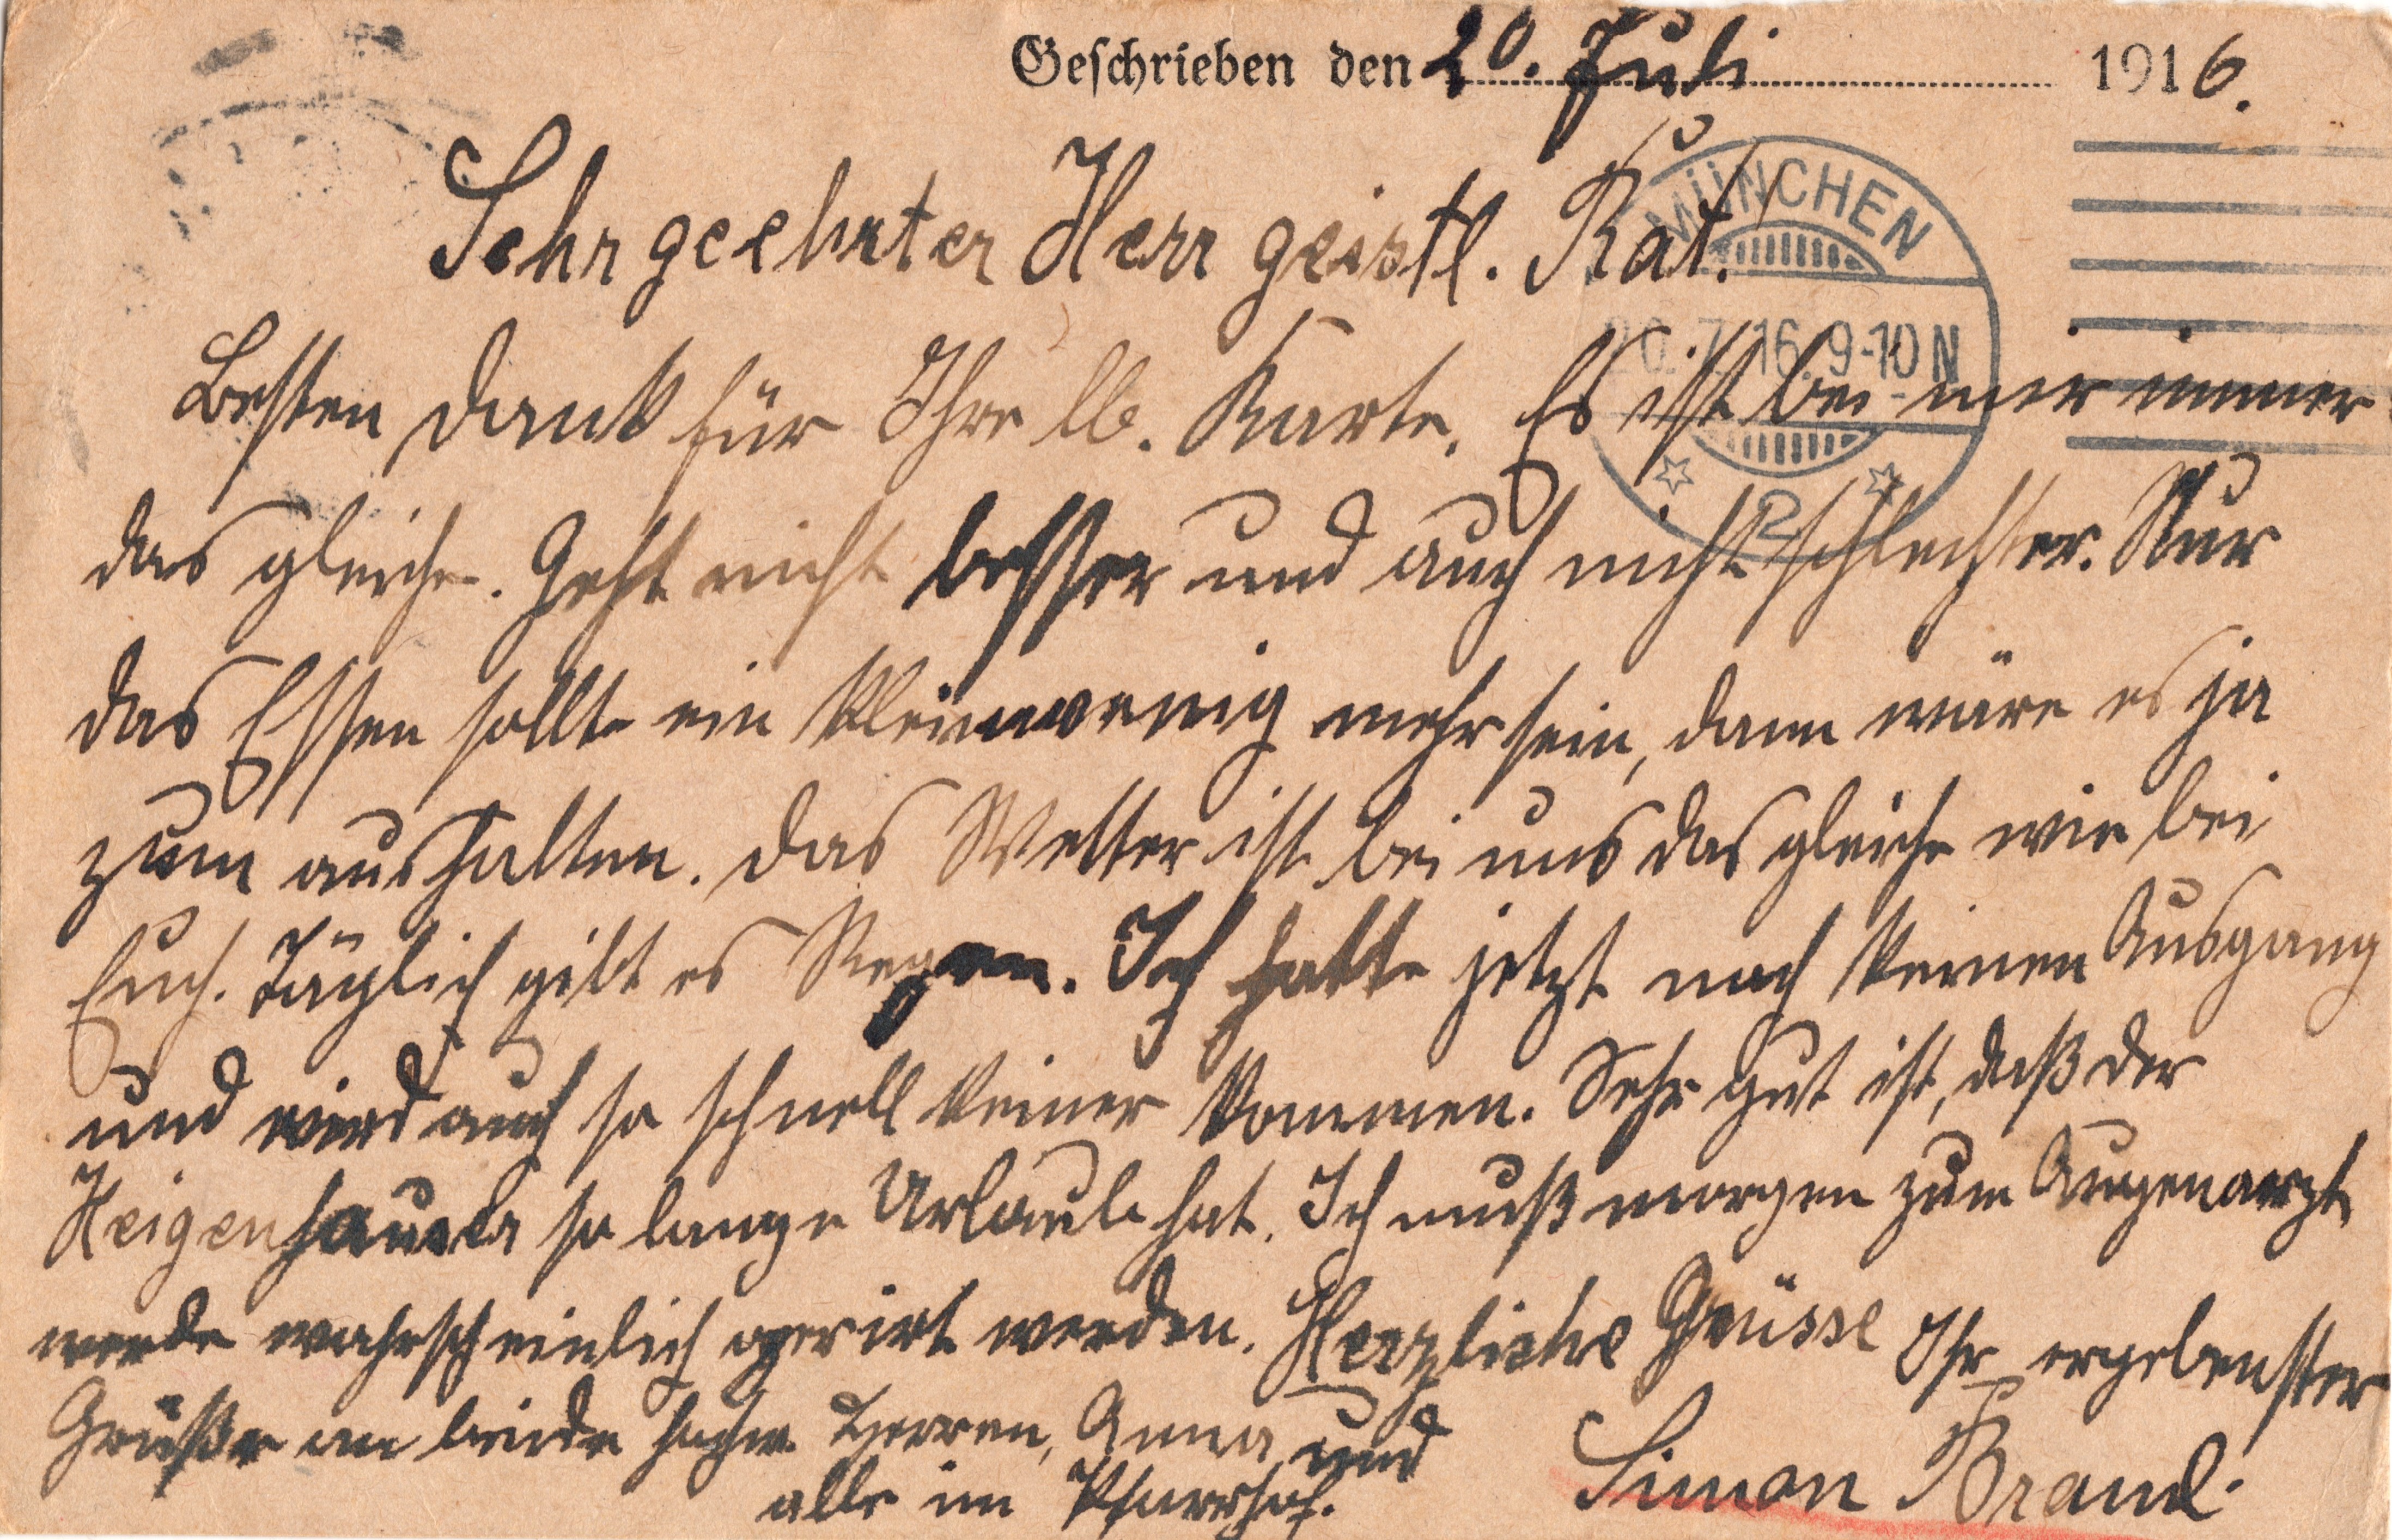 Geschrieben den 20. Juli 1916.
Sehr geehrter Herr geistl. Rat!
Besten Dank für Ihre lb. Karte. Es ist bei mir immer
das gleiche. Geht nicht besser und auch nicht schlechter. Nur
das Essen sollte ein kleinwenig mehr sein, dann wäre es ja
zum aushalten. Das Wetter ist bei uns das gleiche wie bei
Euch. Täglich gibt es Regen. Ich hatte jetzt noch keinen Ausgang
und wird auch so schnell keiner kommen. Sehr gut ist, daß der
Heigenhauser so lange Urlaub hat. Ich muß morgen zum Augenarzt
werde wahrscheinlich operirt werden. Herzliche Grüsse Ihr ergebenster
Grüße an beide hochw. Herren, Anna und
alle im Pfarrhof.
Simon Brand.
MÜNCHEN
20.7.16. 9-10 N
2